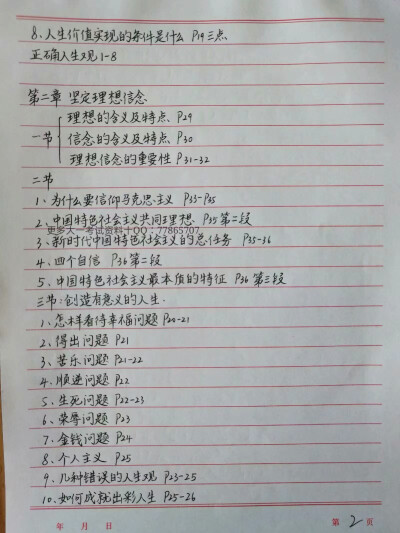 8、人生价值实现的条件是什么 P19三点
正确人生观1-8
第二章 坚定理想信念
理想的含义及特点、P29
一节 信念的含义及特点、P30
理想信念的重要性 P31-32
二节
1、为什么要信仰马克思主义 P33-P35
2、中国特色社会主义共同理想 P35第二段
更多大一考试资料+QQ：77865707
3、新时代中国特色社会主义的总任务 P35-36
4、四个自信 P36第二段
5、中国特色社会主义最本质的特征 P36第三段
三节:创造有意义的人生.
1、怎样看待幸福问题P20-21
2、得出问题 P21
3、苦乐问题 P21-22
4、顺逆问题 P22
5、生死问题 P22-23
6、荣辱问题 P23
7、金钱问题 P24
8、个人主义 P25
9、几种错误的人生观 P23-25
10、如何成就出彩人生 P25-26
年 月 日 第 2 页